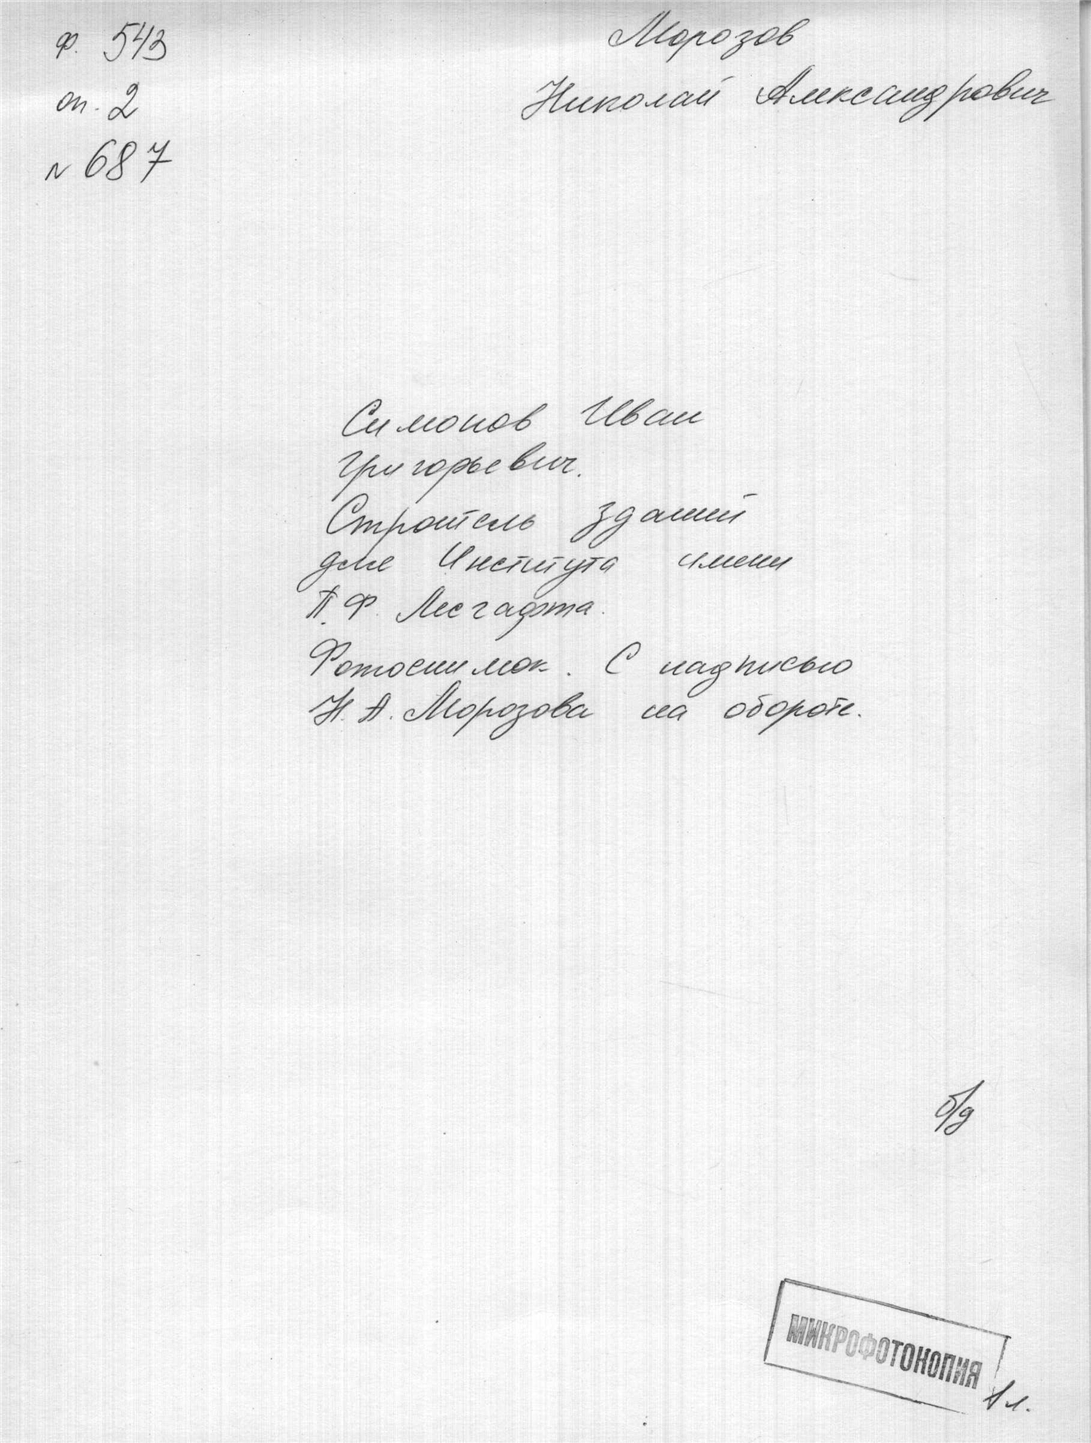 ф. 543
оп. 2
N 687
Морозов
Николай Александрович
Симонов Иван
Григорьевич.
Строитель зданий
для Института имени
П.Ф. Лесгафта.
Фотоснимок. С надписью
Н.А. Морозова на обороте.
б/д
МИКРОФОТОКОПИЯ
1 л.